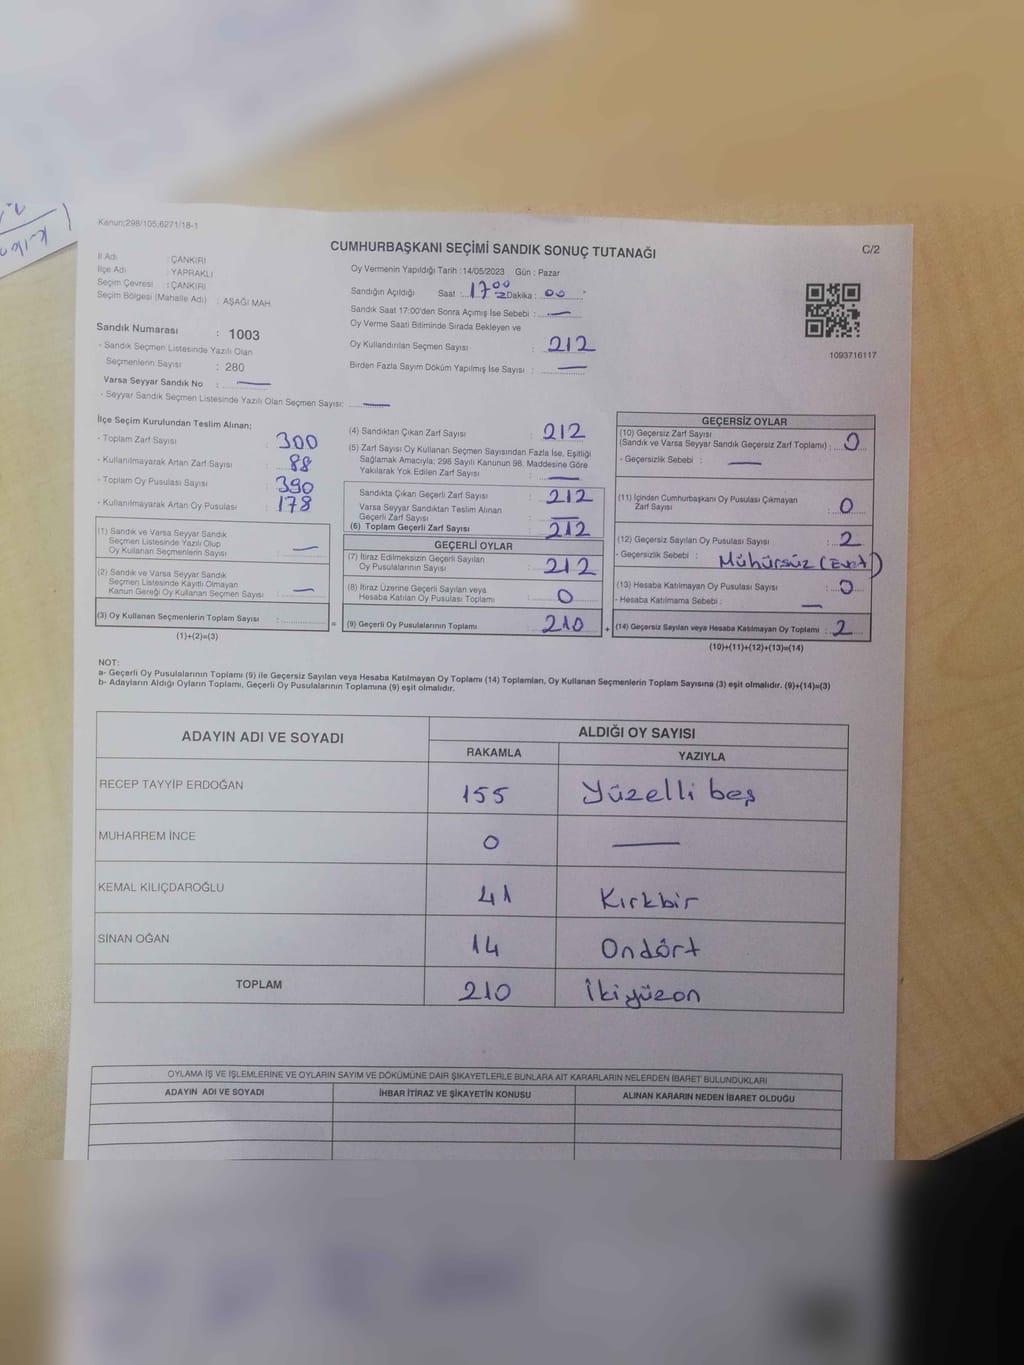 Kanun:298/105;6271/18-1
CUMHURBAŞKANI SEÇİMİ SANDIK SONUÇ TUTANAĞI
C/2
İl Adı : ÇANKIRI
İlçe Adı : YAPRAKLI
Seçim Çevresi : ÇANKIRI
Seçim Bölgesi (Mahalle Adı) : AŞAĞI MAH.
Sandık Numarası : 1003
- Sandık Seçmen Listesinde Yazılı Olan
Seçmenlerin Sayısı : 280
Varsa Seyyar Sandık No :
- Seyyar Sandık Seçmen Listesinde Yazılı Olan Seçmen Sayısı:
Oy Vermenin Yapıldığı Tarih : 14/05/2023 Gün : Pazar
Sandığın Açıldığı Saat : 17 00 Dakika : 00
Sandık Saat 17:00'den Sonra Açımış İse Sebebi : —
Oy Verme Saati Bitiminde Sırada Bekleyen ve
Oy Kullandırılan Seçmen Sayısı : 212
Birden Fazla Sayım Döküm Yapılmış İse Sayısı : —
1093716117
İlçe Seçim Kurulundan Teslim Alınan:
- Toplam Zarf Sayısı : 300
- Kullanılmayarak Artan Zarf Sayısı : 88
- Toplam Oy Pusulası Sayısı : 390
- Kullanılmayarak Artan Oy Pusulası : 178
(1) Sandık ve Varsa Seyyar Sandık
Seçmen Listesinde Yazılı Olup
Oy Kullanan Seçmenlerin Sayısı : —
(2) Sandık ve Varsa Seyyar Sandık
Seçmen Listesinde Kayıtlı Olmayan
Kanun Gereği Oy Kullanan Seçmen Sayısı : —
(3) Oy Kullanan Seçmenlerin Toplam Sayısı :
(1)+(2)=(3)
(4) Sandıktan Çıkan Zarf Sayısı : 212
(5) Zarf Sayısı Oy Kullanan Seçmen Sayısından Fazla İse, Eşitliği
Sağlamak Amacıyla; 298 Sayılı Kanunun 98. Maddesine Göre
Yakılarak Yok Edilen Zarf Sayısı : —
Sandıkta Çıkan Geçerli Zarf Sayısı : 212
Varsa Seyyar Sandıktan Teslim Alınan
Geçerli Zarf Sayısı : —
(6) Toplam Geçerli Zarf Sayısı : 212
GEÇERLİ OYLAR
(7) İtiraz Edilmeksizin Geçerli Sayılan
Oy Pusulalarının Sayısı : 212
(8) İtiraz Üzerine Geçerli Sayılan veya
Hesaba Katılan Oy Pusulası Toplamı : 0
= (9) Geçerli Oy Pusulalarının Toplamı : 210
GEÇERSİZ OYLAR
(10) Geçersiz Zarf Sayısı
(Sandık ve Varsa Seyyar Sandık Geçersiz Zarf Toplamı) : 0
- Geçersizlik Sebebi : —
(11) İçinden Cumhurbaşkanı Oy Pusulası Çıkmayan
Zarf Sayısı : 0
(12) Geçersiz Sayılan Oy Pusulası Sayısı : 2
- Geçersizlik Sebebi : Mühürsüz (Evet)
(13) Hesaba Katılmayan Oy Pusulası Sayısı : 0
- Hesaba Katılmama Sebebi : —
+ (14) Geçersiz Sayılan veya Hesaba Katılmayan Oy Toplamı : 2
(10)+(11)+(12)+(13)=(14)
NOT:
a- Geçerli Oy Pusulalarının Toplamı (9) ile Geçersiz Sayılan veya Hesaba Katılmayan Oy Toplamı (14) Toplamları, Oy Kullanan Seçmenlerin Toplam Sayısına (3) eşit olmalıdır. (9)+(14)=(3)
b- Adayların Aldığı Oyların Toplamı, Geçerli Oy Pusulalarının Toplamına (9) eşit olmalıdır.
ADAYIN ADI VE SOYADI ALDIĞI OY SAYISI
RAKAMLA YAZIYLA
RECEP TAYYİP ERDOĞAN 155 Yüzelli beş
MUHARREM İNCE 0 —
KEMAL KILIÇDAROĞLU 41 Kırkbir
SİNAN OĞAN 14 Ondört
TOPLAM 210 İkiyüzon
OYLAMA İŞ VE İŞLEMLERİNE VE OYLARIN SAYIM VE DÖKÜMÜNE DAİR ŞİKAYETLERLE BUNLARA AİT KARARLARIN NELERDEN İBARET BULUNDUKLARI
ADAYIN ADI VE SOYADI İHBAR İTİRAZ VE ŞİKAYETİN KONUSU ALINAN KARARIN NEDEN İBARET OLDUĞU